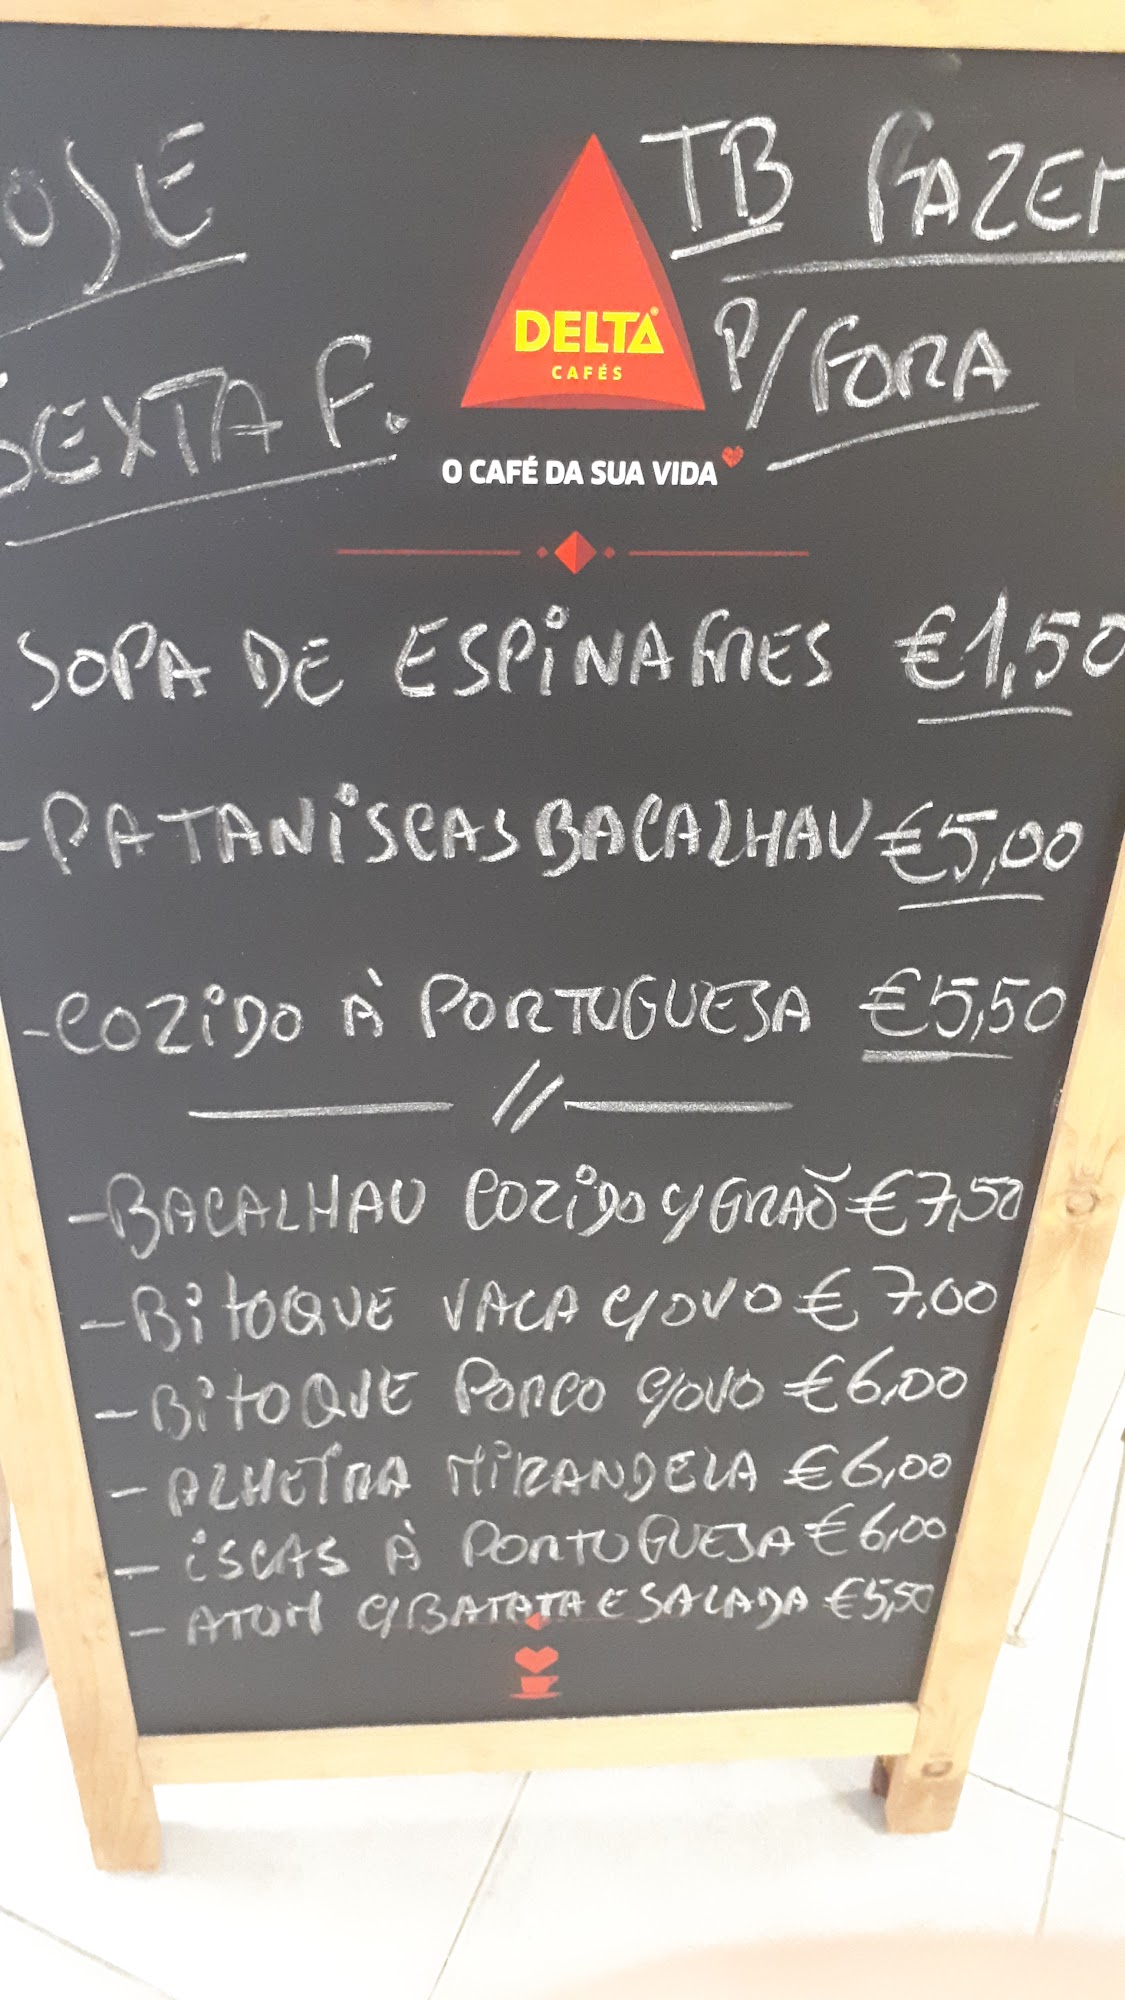 SEXTA F.
DELTA
CAFÉS
O CAFÉ DA SUA VIDA
TB FAZEM
P/FORA
SOPA DE ESPINAFRES €1,50
-PATANISCAS BACALHAU €5,00
-COZIDO À PORTUGUESA €5,50
//
-BACALHAU COZIDO C/GRÃO €7,50
-BITOQUE VACA C/OVO € 7,00
-BITOQUE PORCO C/OVO €6,00
-ALHEIRA MIRANDELA €6,00
-ISCAS À PORTUGUESA €6,00
-ATUM C/BATATA E SALADA €5,50